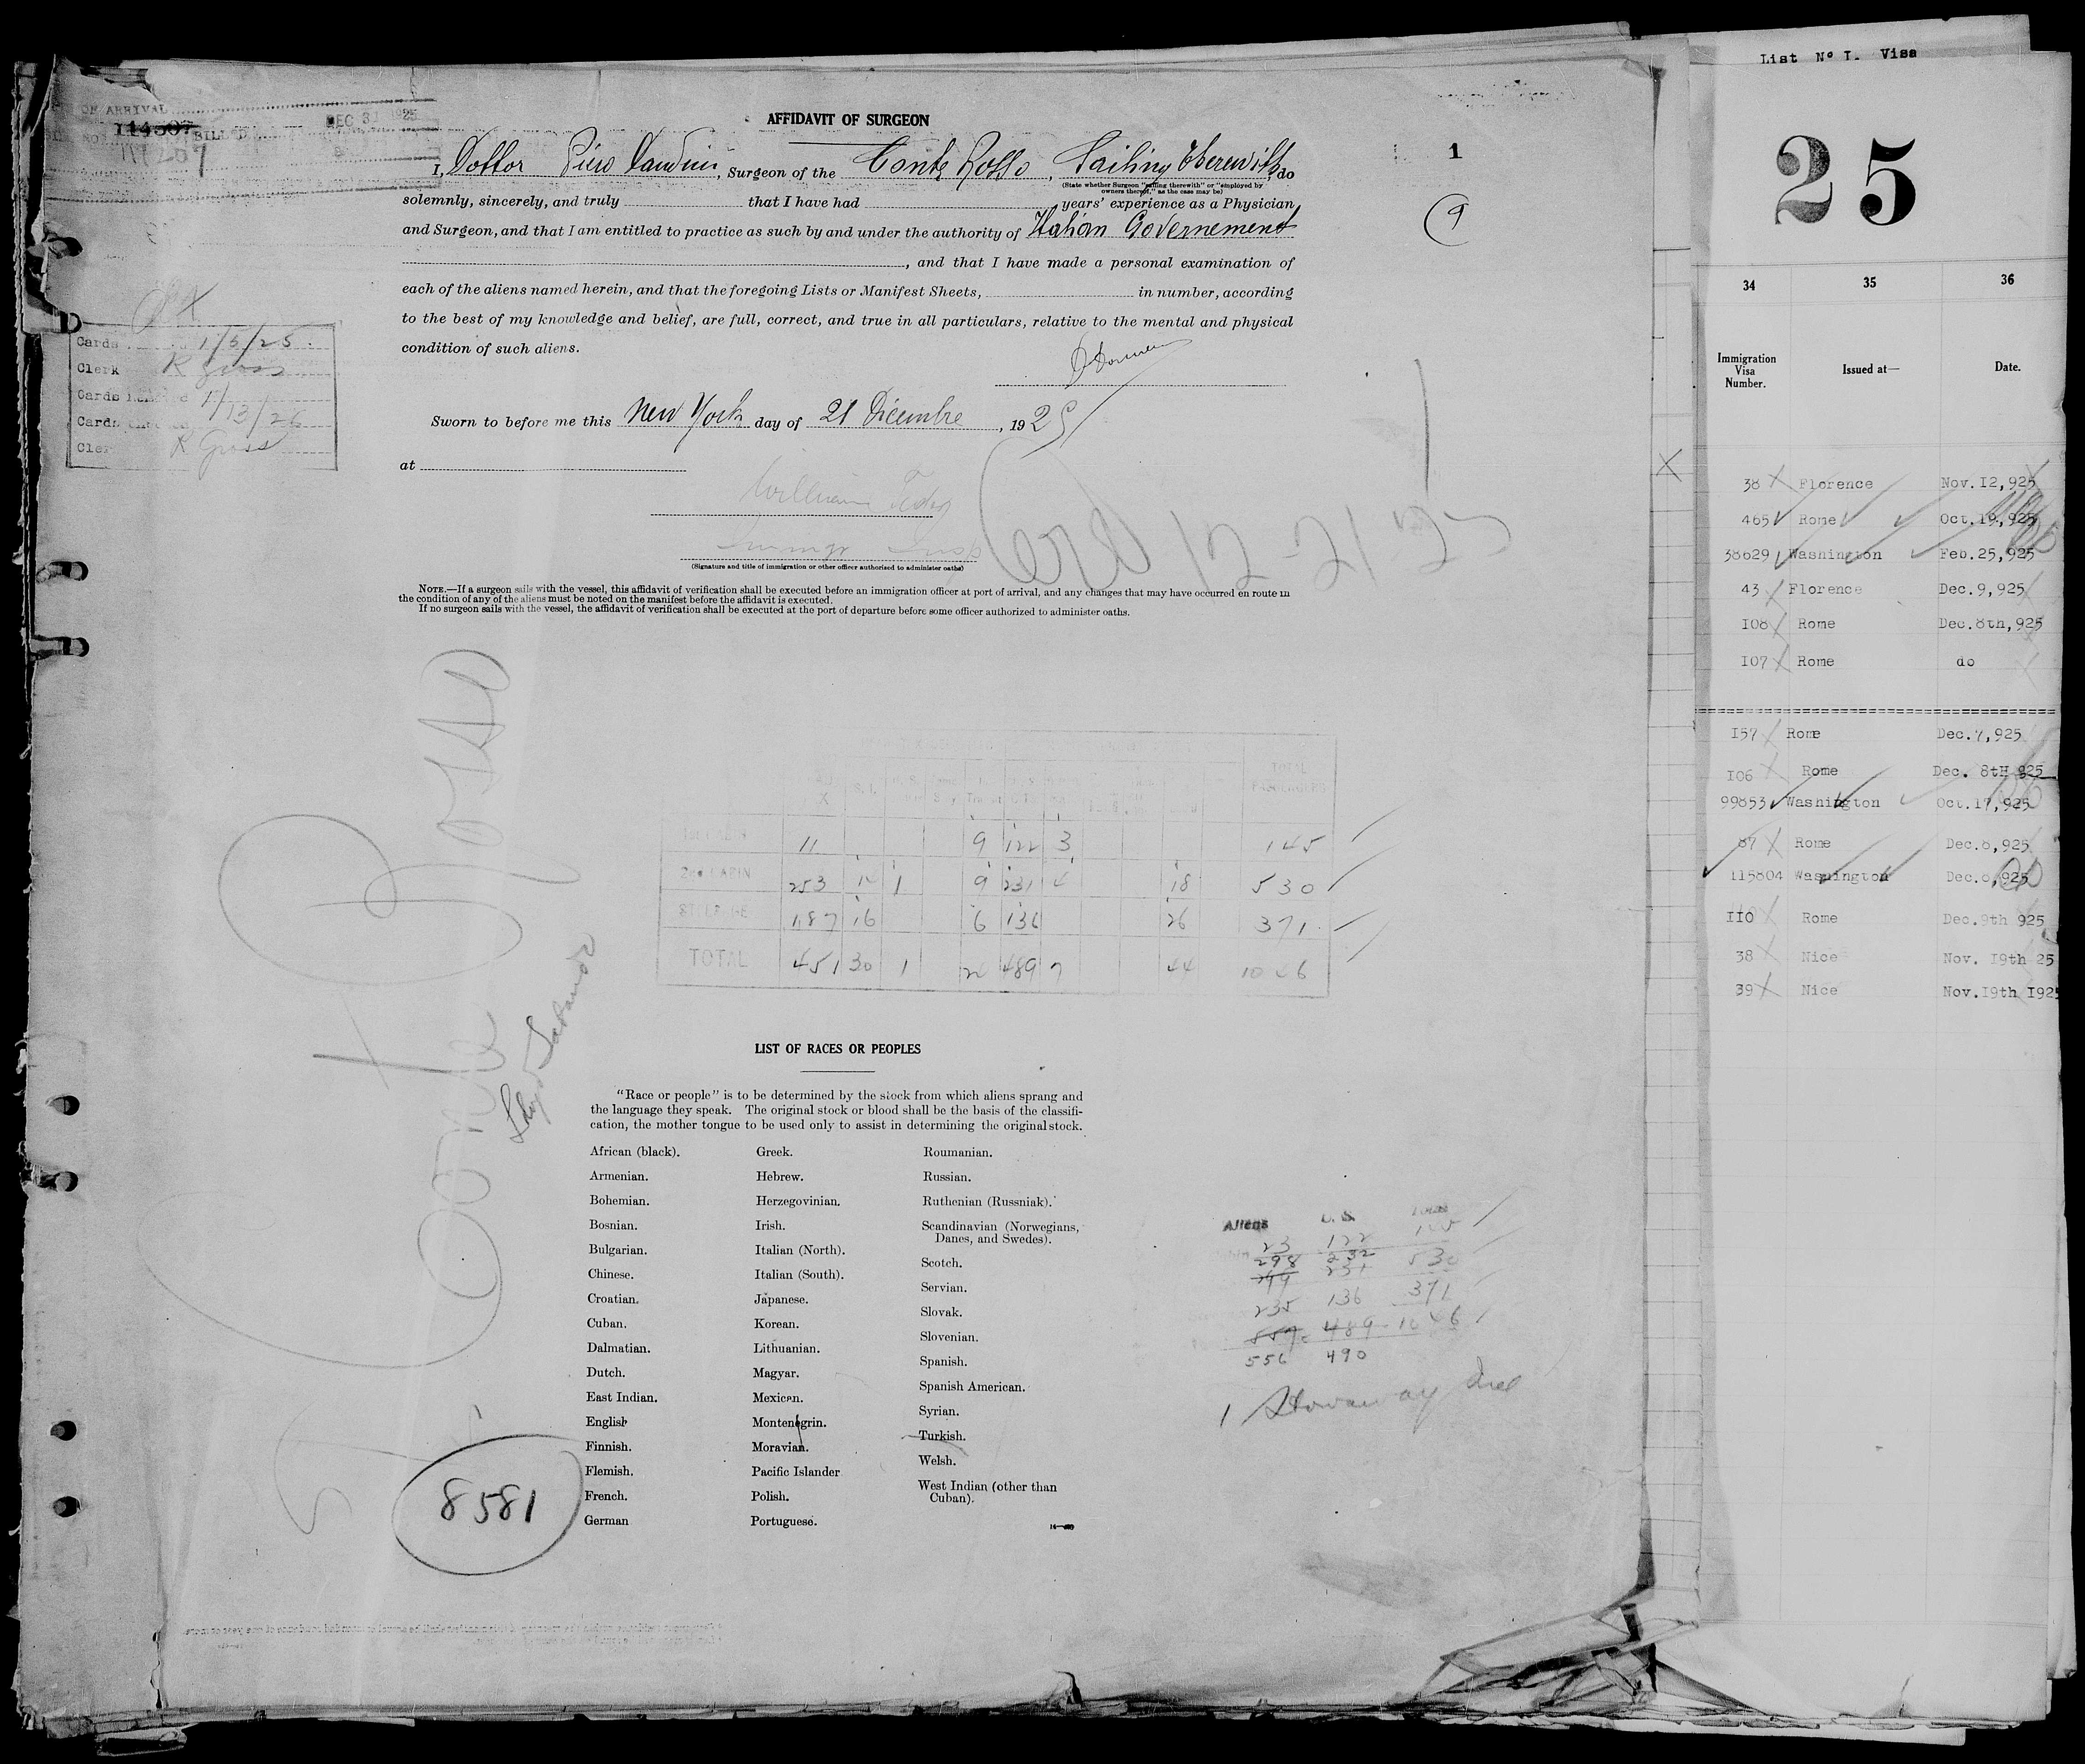 OF ARRIVAL
114507 BILL
DEC 31 1925
AFFIDAVIT OF SURGEON
1
I, Dottor Piero, Surgeon of the Conte Rosso, Sailing therewith, do
(State whether Surgeon "sailing therewith" or "employed by
owners thereof," as the case may be)
solemnly, sincerely, and truly that I have had years' experience as a Physician
and Surgeon, and that I am entitled to practice as such by and under the authority of Italian Governement
9
, and that I have made a personal examination of
each of the aliens named herein, and that the foregoing Lists or Manifest Sheets, in number, according
to the best of my knowledge and belief, are full, correct, and true in all particulars, relative to the mental and physical
condition of such aliens.
Cards 1/5/25.
Clerk R Gross
Cards 1/13/26
Cards
Cler R Gross
Sworn to before me this New York day of 21 Dicembre, 1925
at
William
Immigr Insp
(Signature and title of immigration or other officer authorized to administer oaths)
12-21-25
NOTE.—If a surgeon sails with the vessel, this affidavit of verification shall be executed before an immigration officer at port of arrival, and any changes that may have occurred en route in
the condition of any of the aliens must be noted on the manifest before the affidavit is executed.
If no surgeon sails with the vessel, the affidavit of verification shall be executed at the port of departure before some officer authorized to administer oaths.
Conte Rosso
Lloyd Sabaudo
TOTAL PASSENGERS
S.I.
1st CABIN 11 9 122 3 145
2nd CABIN 253 14 1 9 231 4 18 530
STEERAGE 187 16 6 136 26 371
TOTAL 451 30 1 24 489 7 44 1046
LIST OF RACES OR PEOPLES
"Race or people" is to be determined by the stock from which aliens sprang and
the language they speak. The original stock or blood shall be the basis of the classifi-
cation, the mother tongue to be used only to assist in determining the original stock.
African (black).
Armenian.
Bohemian.
Bosnian.
Bulgarian.
Chinese.
Croatian.
Cuban.
Dalmatian.
Dutch.
East Indian.
English
Finnish.
Flemish.
French.
German
Greek.
Hebrew.
Herzegovinian.
Irish.
Italian (North).
Italian (South).
Japanese.
Korean.
Lithuanian.
Magyar.
Mexican.
Montenegrin.
Moravian.
Pacific Islander
Polish.
Portuguese.
Roumanian.
Russian.
Ruthenian (Russniak).
Scandinavian (Norwegians,
Danes, and Swedes).
Scotch.
Servian.
Slovak.
Slovenian.
Spanish.
Spanish American.
Syrian.
Turkish.
Welsh.
West Indian (other than
Cuban).
Aliens U.S. Total
23 122 145
298 232 530
299 231
235 136 371
557 489 1046
556 490
1 Stowaway
8581
List No I. Visa
25
34 35 36
Immigration
Visa
Number.
Issued at—
Date.
38 Florence Nov.12,925
465 Rome Oct.19,925
38629 Washington Feb.25,925
43 Florence Dec.9,925
108 Rome Dec.8th,925
107 Rome do
157 Rome Dec.7,925
106 Rome Dec. 8tH 925
99853 Washington Oct.17,925
87 Rome Dec.8,925
115804 Washington Dec.8,925
110 Rome Dec.9th 925
38 Nice Nov. 19th 25
39 Nice Nov.19th 1925